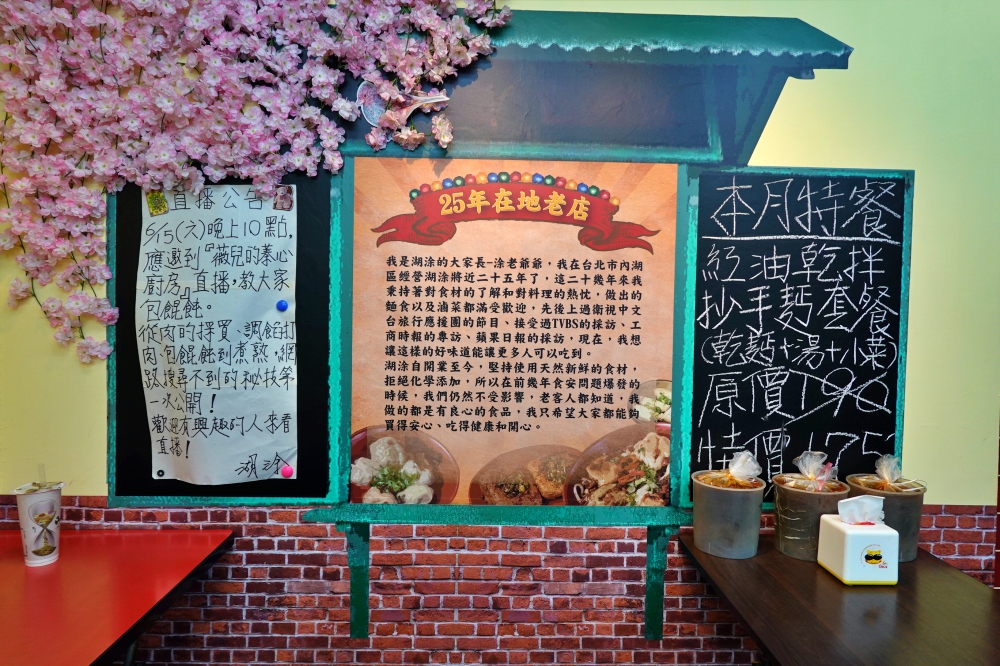 直播公告
5/15(六)晚上10點，
應邀到『薇兒的養心
廚房』直播，教大家
包餛飩。
從肉的採買、調餡打
肉、包餛飩到煮熟，網
路搜尋不到的秘技第
一次公開！
歡迎有興趣的人來看
直播！
湖涂
25年在地老店
我是湖涂的大家長-涂老爺爺，我在台北市內湖
區經營湖涂將近二十五年了，這二十幾年來我
秉持著對食材的了解和對料理的熱忱，做出的
麵食以及滷菜都滿受歡迎，先後上過衛視中文
台旅行應援團的節目、接受過TVBS的採訪、工
商時報的專訪、蘋果日報的採訪，現在，我想
讓這樣的好味道能讓更多人可以吃到。
湖涂自開業至今，堅持使用天然新鮮的食材，
拒絕化學添加，所以在前幾年食安問題爆發的
時候，我們仍然不受影響，老客人都知道，我
做的都是有良心的食品，我只希望大家都能夠
買得安心、吃得健康和開心。
本月特餐
紅油乾拌
抄手麵套餐
(乾麵+湯+小菜)
原價190
特價175